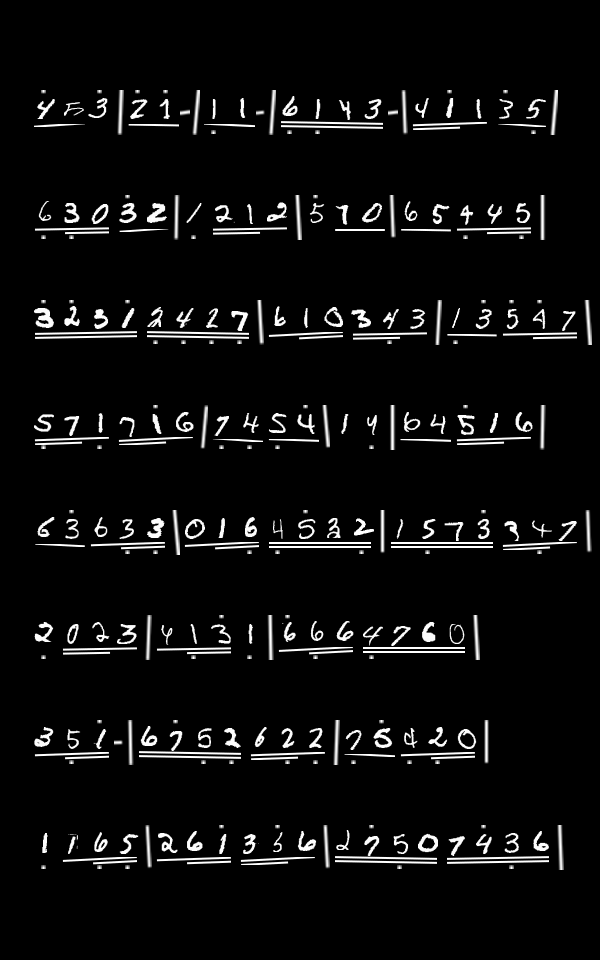 4 5 3 | 2 1 - | 1 1 - | 6 1 4 3 - | 4 1 1 3 5 |
6 3 0 3 2 | 1 2 1 2 | 5 7 0 | 6 5 4 4 5 |
3 2 3 1 2 4 2 7 | 6 1 0 3 4 3 | 1 3 5 4 7 |
5 7 1 7 1 6 | 7 4 5 4 | 1 4 | 6 4 5 1 6 |
6 3 6 3 3 | 0 1 6 4 5 3 2 | 1 5 7 3 3 4 7 |
2 0 2 3 | 4 1 3 1 | 6 6 6 4 7 6 0 |
3 5 1 - | 6 7 5 2 6 2 2 | 7 5 4 2 0 |
1 1 6 5 | 2 6 1 3 3 6 | 2 7 5 0 7 4 3 6 |